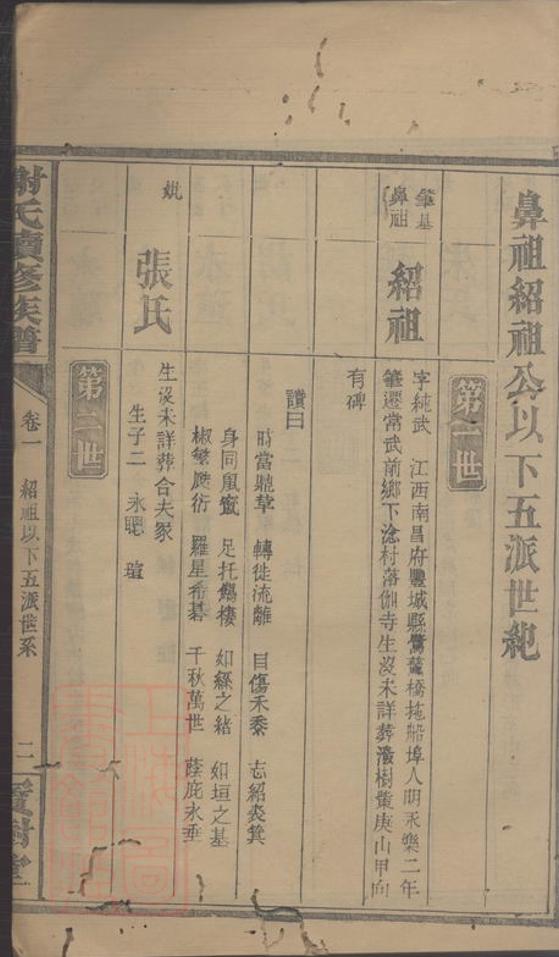 鼻祖紹祖公以下五派世紀
第一世
肇基
鼻祖
紹祖
字純武 江西南昌府豐城縣鴛鴦橋拖船埠人明永樂二年
肇遷常武前鄉下淰村落伽寺生沒未詳葬潑樹嘴庚山甲向
有碑
讚曰
時當鼎革 轉徙流離 目傷禾黍 志紹裘箕
身同風 足托鷦棲 如繇之緒 如垣之基
椒繁瓞衍 羅星布碁 千秋萬世 蔭庇永垂
妣
張氏
生沒未詳葬合夫冢
生子二 永聰 瑄
第二世
謝氏續修族譜
卷一
紹祖以下五派世系
二
寶樹堂